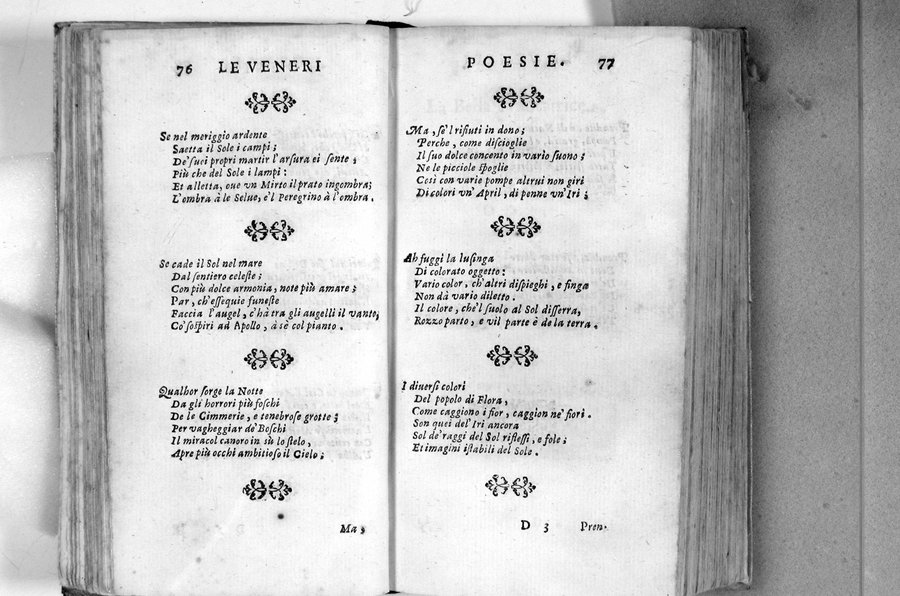 76 LE VENERI
Se nel meriggio ardente
Saetta il Sole i campi;
De' suoi propri martir l'arsura ei sente;
Più che del Sole i lampi:
Et alletta, oue vn Mirto il prato ingombra;
L'ombra à le Selue, e'l Peregrino à l'ombra.
Se cade il Sol nel mare
Dal sentiero celeste;
Con più dolce armonia, note più amare;
Par, ch'essequie funeste
Faccia l'augel, c'hà tra gli augelli il vanto,
Co' sospiri ad Apollo, à sè col pianto.
Qualhor sorge la Notte
Da gli horrori più foschi
De le Cimmerie, e tenebrose grotte;
Per vagheggiar de' Boschi
Il miracol canoro in sù lo stelo,
Apre più occhi ambitioso il Cielo;
Ma,
POESIE. 77
Ma, se'l rifiuti in dono;
Perche, come discioglie
Il suo dolce concento in vario suono;
Ne le picciole spoglie
Così con varie pompe altrui non giri
Di colori vn' April, di penne vn' Iri;
Ah fuggi la lusinga
Di colorato oggetto:
Vario color, ch'altri dispieghi, e finga
Non dà vario diletto.
Il colore, che'l suolo al Sol disserra,
Rozzo parto, e vil parte è de la terra.
I diuersi colori
Del popolo di Flora,
Come caggiono i fior, caggion ne' fiori.
Son quei del' Iri ancora
Sol de' raggi del Sol riflessi, e fole;
Et imagini istabili del Sole.
D 3 Pren-